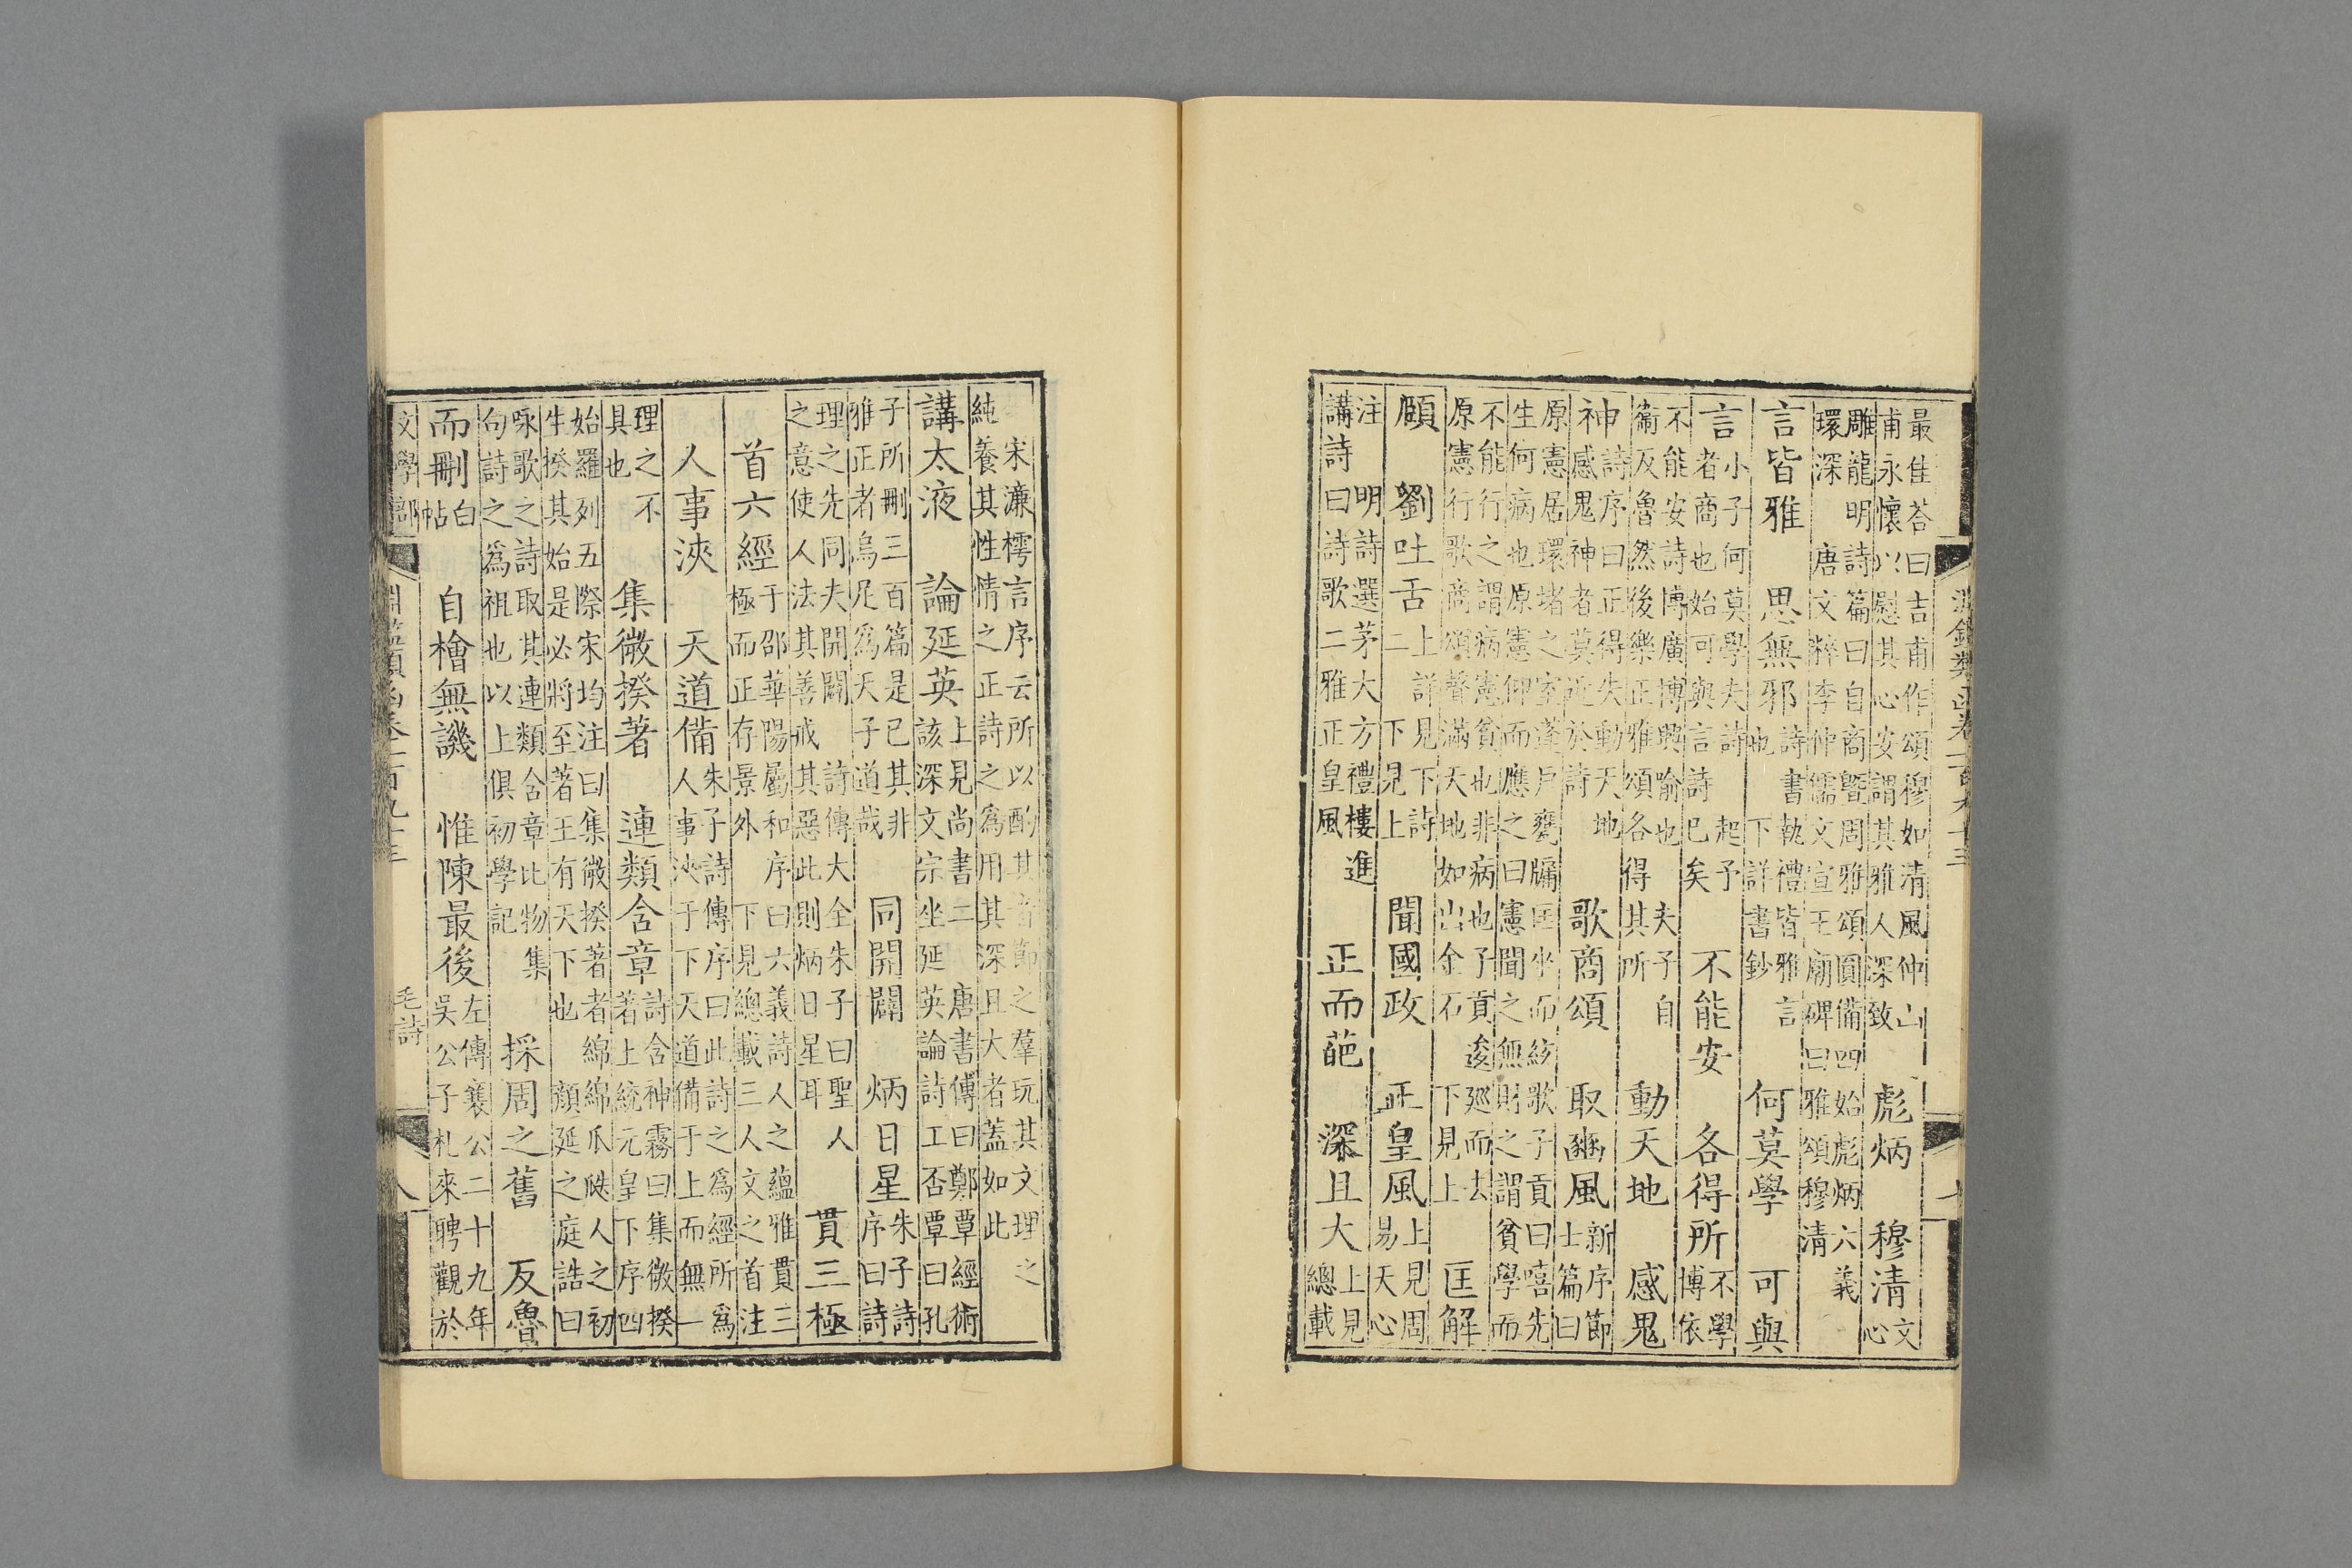 淵鑑類函卷一百九十三 七
最佳荅曰吉甫作頌穆如清風仲山
甫永懷以慰其心安謂其雅人深致
彪炳 穆清
文
心
雕龍明詩篇曰自商曁周雅頌圓備四始彪炳六義
環深 唐文粹李仲儒文宣王廟碑曰雅頌穆清
言皆雅 思無邪
詩書執禮皆雅言
也 下詳書鈔
何莫學 可與
言
小子何莫學夫詩 起予
者商也始可與言詩已矣
不能安 各得所
不學
博依
不能安詩博廣博興喻也 夫子自
衞反魯然後樂正雅頌各得其所
動天地 感鬼
神
詩序曰正得失動天地
感鬼神者莫近於詩
歌商頌 取豳風
新序節
士篇曰
原憲居環堵之室蓬戶甕牖匡坐而絃歌子貢曰嘻先
生何病也原憲仰而應之曰憲聞之無財之謂貧學而
不能行之謂病憲貧也非病也子貢逡巡而去
原憲行歌商頌聲滿天地如出金石 下見上
匡解
頤 劉吐舌
上詳見下詩
二 下見上
聞國政 正皇風
上見周
易天心
注 明詩選茅大方禮樓進
講詩曰詩歌二雅正皇風
正而葩 深且大
上見
總載
宋濂樗言序云所以酌其音節之羣玩其文理之
純養其性情之正詩之爲用其深且大者蓋如此
講太液 論延英
上見尚書二 唐書傳曰鄭覃經術
該深文宗坐延英論詩工否覃曰孔
子所刪三百篇是已其非
雅正者烏足爲天子道哉
同開闢 炳日星
朱子詩
序曰詩
理之先同夫開闢 詩傳大全朱子曰聖人
之意使人法其善戒其惡此則炳日星耳
貫三極
首六經
于邵華陽屬和序曰六義詩人之蘊雅貫三
極而正存景外 下見總載三人文之首注
人事浹 天道備
朱子詩傳序曰此詩之爲經所爲
人事浹于下天道備于上而無一
理之不
具也
集微揆著 連類含章
詩含神霧曰集微揆
著上統元皇下序四
始羅列五際宋均注曰集微揆著者綿綿瓜瓞人之初
生揆其始是必將至著王有天下也 顔延之庭誥曰
咏歌之詩取其連類含章比物集
句詩之爲祖也以上俱初學記
採周之舊 反魯
而刪
白
帖
自檜無譏 惟陳最後
左傳襄公二十九年
吳公子札來聘觀於
文學部 淵鑑類函卷一百九十三 毛詩 八